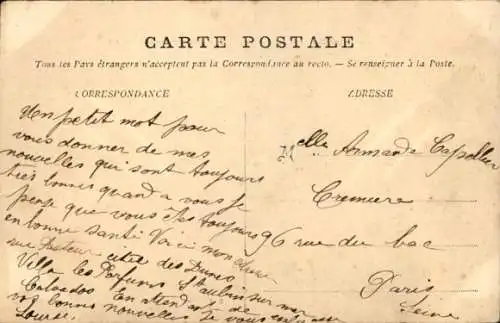 CARTE POSTALE
Tous les Pays étrangers n'acceptent pas la Correspondance au recto. — Se renseigner à la Poste.
CORRESPONDANCE
Un petit mot pour
vous donner de mes
nouvelles qui sont toujours
très quand a vous je
pense que vous êtes toujours
en bonne santé Voici mon
rue Pasteur cité des Dunes
Villa les Parfums St aubin sur mer
Calvados En attendant de
vos bonnes nouvelles Je vous
Louise
ADRESSE
Melle Armande
Cremière
96 rue du bac
Paris
Seine